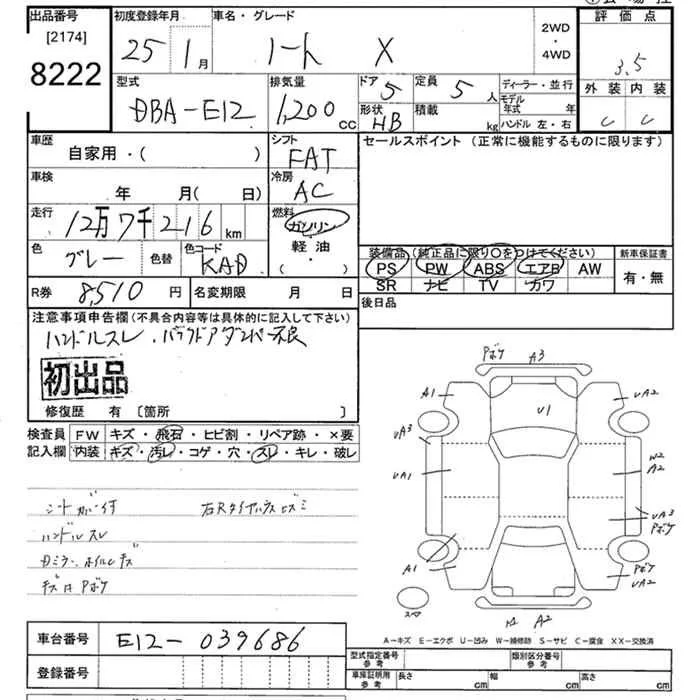 出品番号
[2174]
8222
初度登録年月
25年 1月
車名・グレード
ノート X
2WD
・
4WD
評価点
3.5
外装 内装
C C
型式
DBA-E12
排気量
1,200 cc
ドア
5
形状
HB
定員
5人
積載
kg
ディーラー・並行
モデル年式 年
ハンドル 左・右
車歴
自家用・( )
シフト
FAT
セールスポイント (正常に機能するものに限ります)
車検
年 月( 日)
冷房
AC
走行
12万7千216km
燃料
ガソリン
・
軽油
( ・ )
色
グレー
色替
色コード
KAD
装備品 (純正品に限り○をつけてください)
PS PW ABS エアB AW
SR ナビ TV カワ
新車保証書
有・無
R券
8,510円
名変期限 月 日
後日品
注意事項申告欄(不具合内容等は具体的に記入して下さい)
ハンドルスレ、バックドアダンパー不良
初出品
修復歴 有 [箇所 ]
検査員記入欄
FW キズ・飛石・ヒビ割・リペア跡・×要
内装 キズ・汚レ・コゲ・穴・スレ・キレ・破レ
ハンドルスレ
Pボケ A3
A1
U1
UA2
UA3
UA1
W2
A2
UA3
Pボケ
A1
Pボケ
UA2
スペア
A2
A-キズ E-エクボ U-凹み W-補修跡 S-サビ C-腐食 XX-交換済
車台番号
E12-039686
登録番号
型式指定番号
参考
類別区分番号
参考
車検証明用
参考
長さ cm
幅 cm
高さ cm